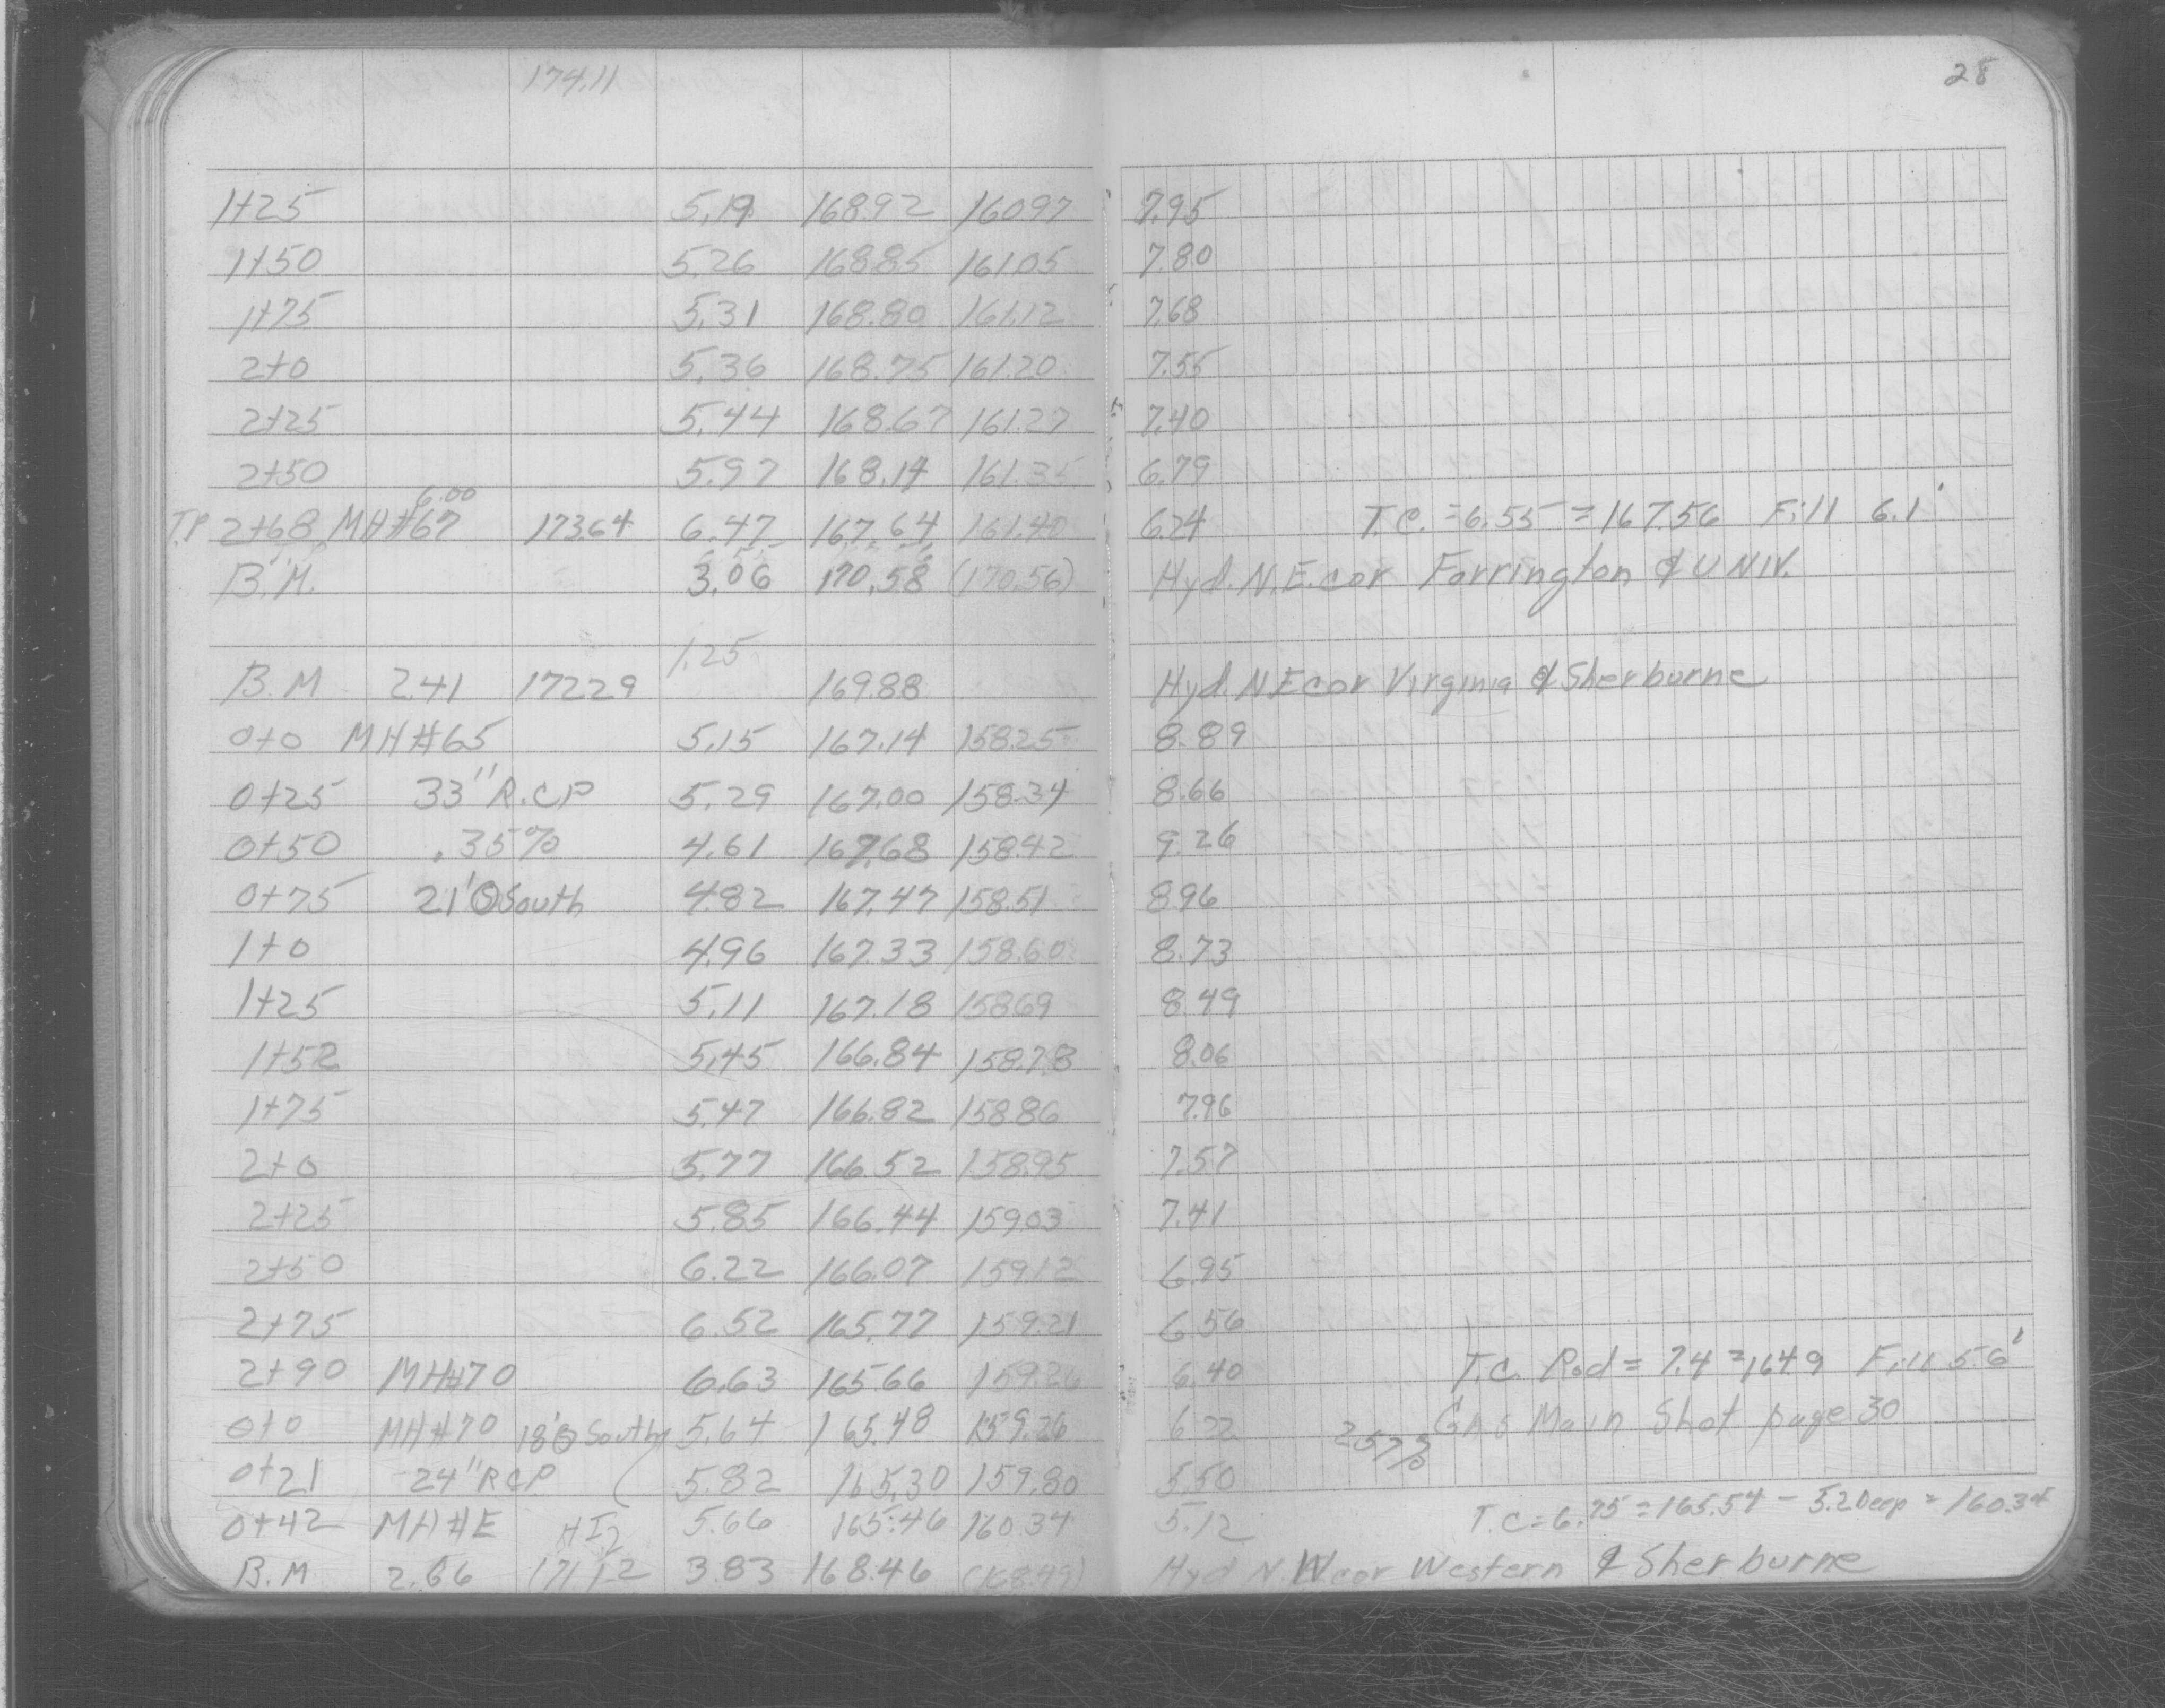 174.11
28
1+25 5.19 168.92 160.97 7.95
1+50 5.26 168.85 161.05 7.80
1+75 5.31 168.80 161.12 7.68
2+0 5.36 168.75 161.20 7.55
2+25 5.44 168.67 161.27 7.40
2+50 5.97 168.14 161.35 6.79
6.00
T.P 2+68 MH#67 173.64 6.47 167.64 161.40 6.24 T.C. = 6.55 = 167.56 Fill 6.1'
B.M. 3.06 170.58 (170.56) Hyd. N.E. cor Farrington & UNIV.
1.25
B.M 2.41 172.29 169.88 Hyd. N.E cor Virginia & Sherburne
0+0 MH#65 5.15 167.14 158.25 8.89
0+25 33" R.C.P 5.29 167.00 158.34 8.66
0+50 .35% 4.61 167.68 158.42 9.26
0+75 21' O South 4.82 167.47 158.51 8.96
1+0 4.96 167.33 158.60 8.73
1+25 5.11 167.18 158.69 8.49
1+52 5.45 166.84 158.78 8.06
1+75 5.47 166.82 158.86 7.96
2+0 5.77 166.52 158.95 7.57
2+25 5.85 166.44 159.03 7.41
2+50 6.22 166.07 159.12 6.95
2+75 6.52 165.77 159.21 6.56
2+90 MH#70 6.63 165.66 159.26 6.40 T.C. Rod = 7.4 = 164.9 Fill 5.6'
0+0 MH#70 18' O South 5.64 165.48 159.26 6.22 2.57% Gas Main Shot page 30
0+21 24" RCP 5.82 165.30 159.80 5.50
0+42 MH#E HI 5.66 165.46 160.34 5.12 T.C = 6. = 165.54 - 5.2 Deep = 160.34
B.M 2.66 171.12 3.83 168.46 (168.49) Hyd N.W. cor Western & Sherburne